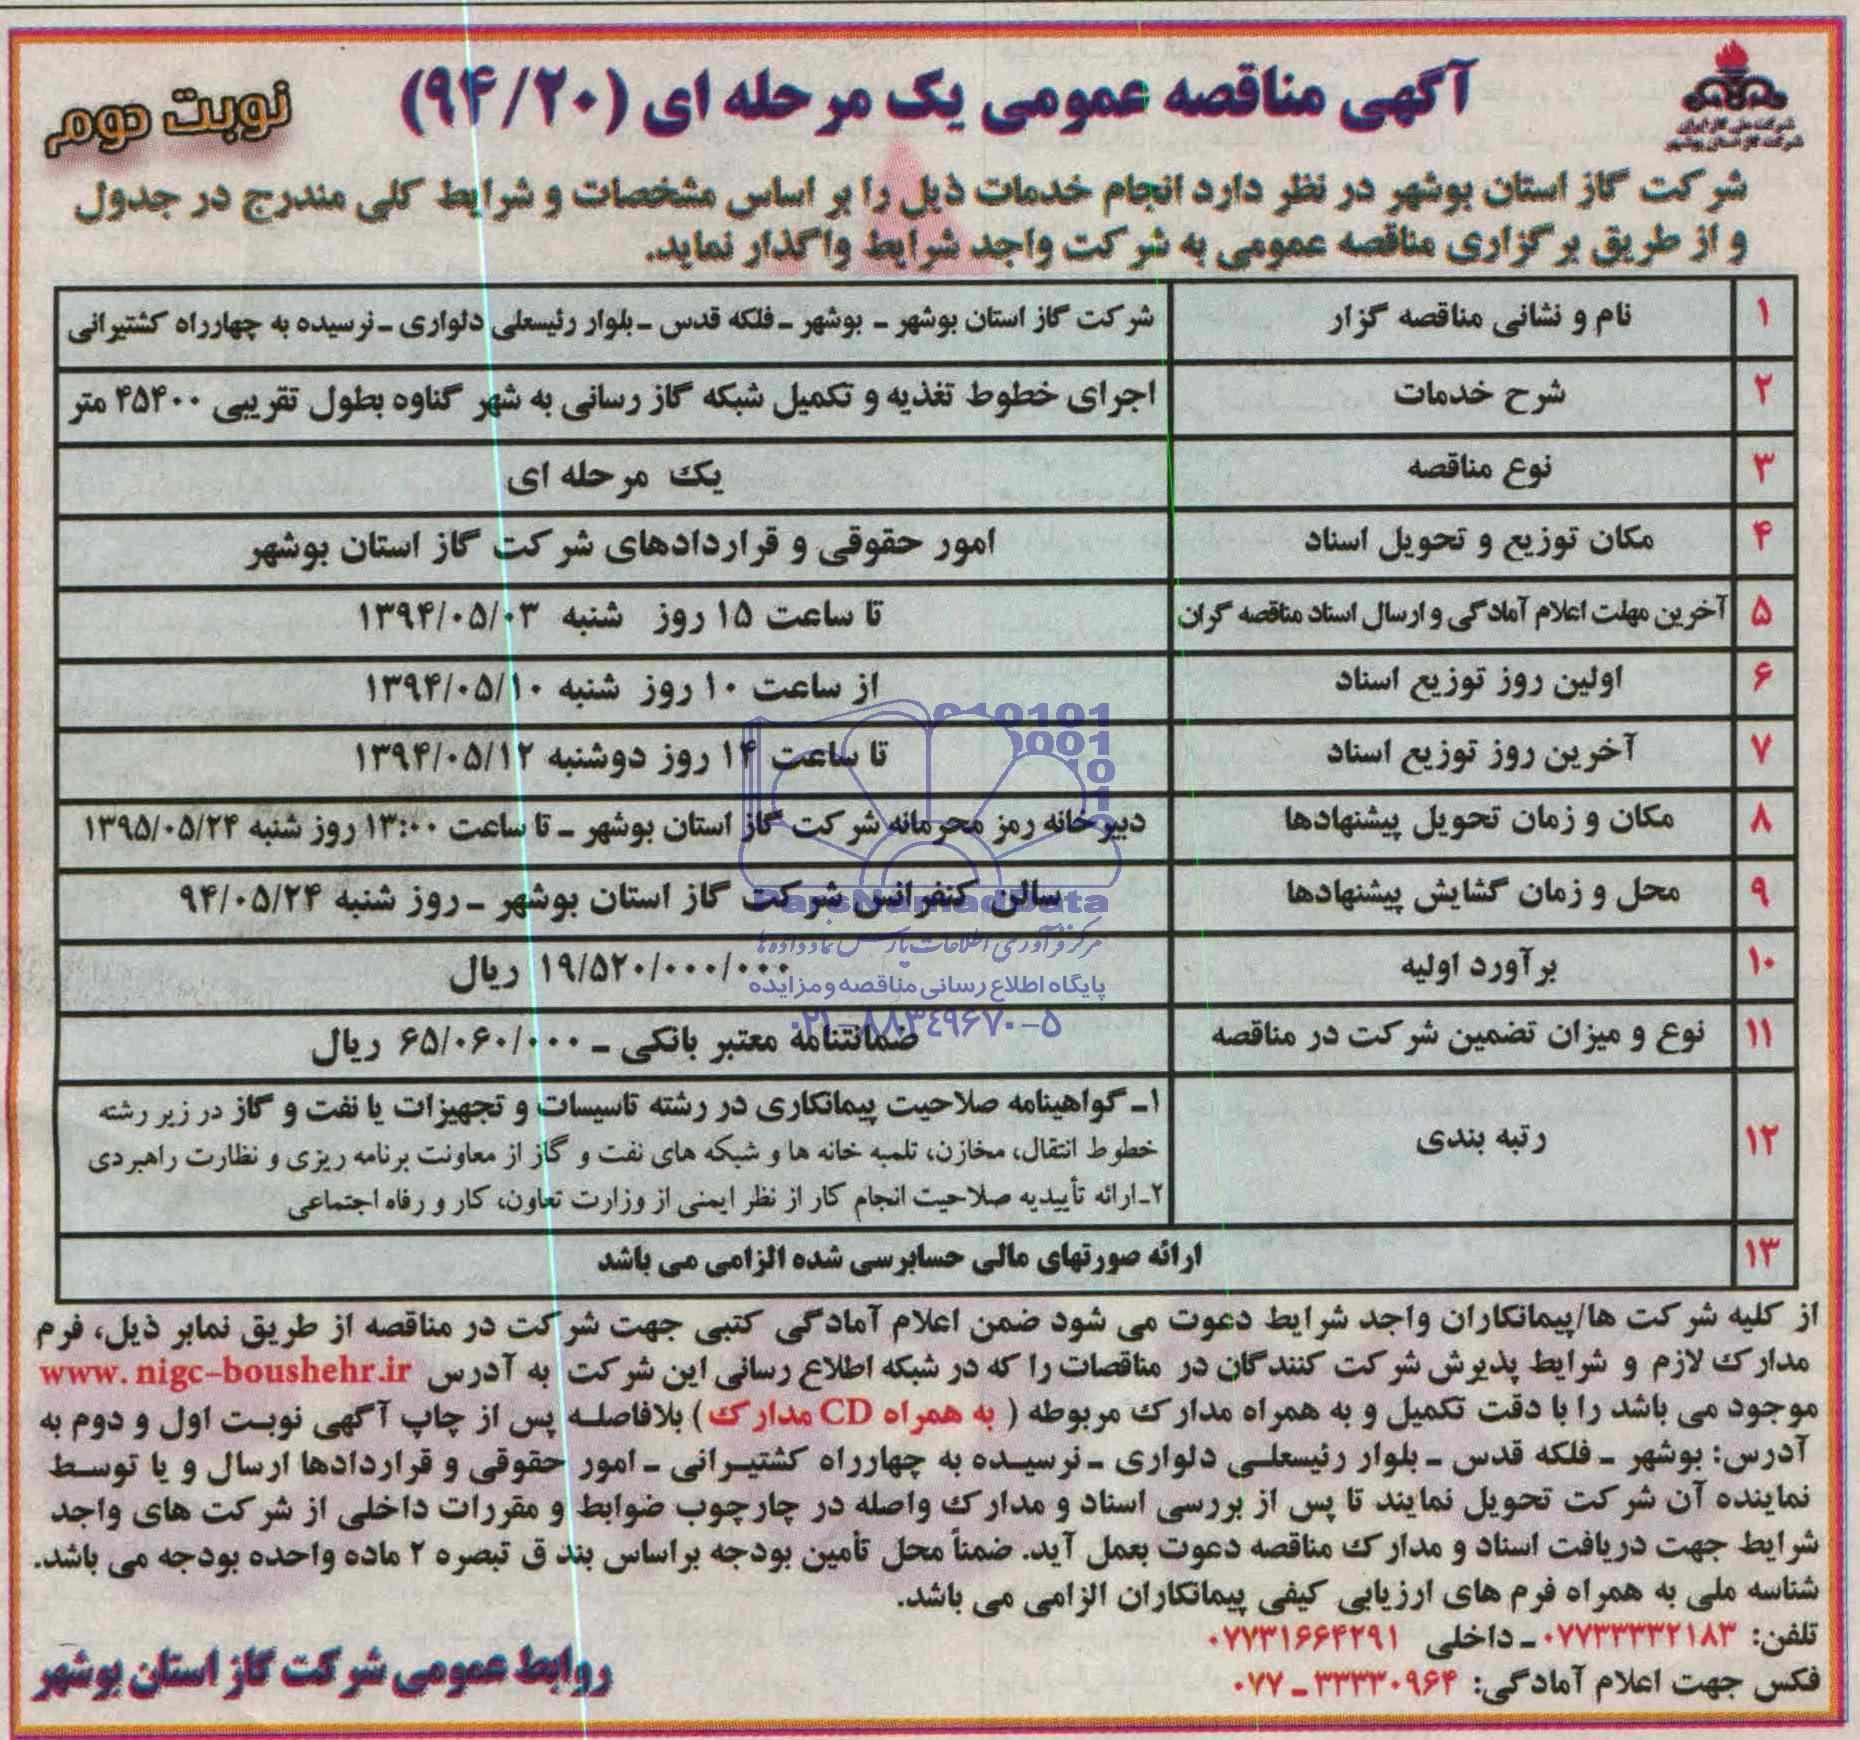 شرکت ملی گاز ایران
شرکت گاز استان بوشهر
آگهی مناقصه عمومی یک مرحله ای (۹۴/۲۰)
نوبت دوم
شرکت گاز استان بوشهر در نظر دارد انجام خدمات ذیل را بر اساس مشخصات و شرایط کلی مندرج در جدول
و از طریق برگزاری مناقصه عمومی به شرکت واجد شرایط واگذار نماید.
۱ نام و نشانی مناقصه گزار شرکت گاز استان بوشهر ـ بوشهر ـ فلکه قدس ـ بلوار رئیسعلی دلواری ـ نرسیده به چهارراه کشتیرانی
۲ شرح خدمات اجرای خطوط تغذیه و تکمیل شبکه گاز رسانی به شهر گناوه بطول تقریبی ۴۵۴۰۰ متر
۳ نوع مناقصه یک مرحله ای
۴ مکان توزیع و تحویل اسناد امور حقوقی و قراردادهای شرکت گاز استان بوشهر
۵ آخرین مهلت اعلام آمادگی و ارسال اسناد مناقصه گران تا ساعت ۱۵ روز شنبه ۱۳۹۴/۰۵/۰۳
۶ اولین روز توزیع اسناد از ساعت ۱۰ روز شنبه ۱۳۹۴/۰۵/۱۰
۷ آخرین روز توزیع اسناد تا ساعت ۱۴ روز دوشنبه ۱۳۹۴/۰۵/۱۲
۸ مکان و زمان تحویل پیشنهادها دبیرخانه رمز محرمانه شرکت گاز استان بوشهر ـ تا ساعت ۱۳:۰۰ روز شنبه ۱۳۹۵/۰۵/۲۴
۹ محل و زمان گشایش پیشنهادها سالن کنفرانس شرکت گاز استان بوشهر ـ روز شنبه ۹۴/۰۵/۲۴
۱۰ برآورد اولیه ۱۹/۵۲۰/۰۰۰/۰۰۰ ریال
۱۱ نوع و میزان تضمین شرکت در مناقصه ضمانتنامه معتبر بانکی ـ ۶۵/۰۶۰/۰۰۰ ریال
۱۲ رتبه بندی ۱ـ گواهینامه صلاحیت پیمانکاری در رشته تاسیسات و تجهیزات یا نفت و گاز در زیر رشته
خطوط انتقال، مخازن، تلمبه خانه ها و شبکه های نفت و گاز از معاونت برنامه ریزی و نظارت راهبردی
۲ـ ارائه تأییدیه صلاحیت انجام کار از نظر ایمنی از وزارت تعاون، کار و رفاه اجتماعی
۱۳ ارائه صورتهای مالی حسابرسی شده الزامی می باشد
010101
0001
10
1
ParsNamadData
مرکز فرآوری اطلاعات پارس نماد داده ها
پایگاه اطلاع رسانی مناقصه و مزایده
۰۲۱-۸۸۳۴۹۶۷۰-۵
از کلیه شرکت ها/پیمانکاران واجد شرایط دعوت می شود ضمن اعلام آمادگی کتبی جهت شرکت در مناقصه از طریق نمابر ذیل، فرم
مدارک لازم و شرایط پذیرش شرکت کنندگان در مناقصات را که در شبکه اطلاع رسانی این شرکت به آدرس www.nigc-boushehr.ir
موجود می باشد را با دقت تکمیل و به همراه مدارک مربوطه ( به همراه CD مدارک ) بلافاصله پس از چاپ آگهی نوبت اول و دوم به
آدرس: بوشهر ـ فلکه قدس ـ بلوار رئیسعلی دلواری ـ نرسیده به چهارراه کشتیرانی ـ امور حقوقی و قراردادها ارسال و یا توسط
نماینده آن شرکت تحویل نمایند تا پس از بررسی اسناد و مدارک واصله در چارچوب ضوابط و مقررات داخلی از شرکت های واجد
شرایط جهت دریافت اسناد و مدارک مناقصه دعوت بعمل آید. ضمناً محل تأمین بودجه براساس بند ق تبصره ۲ ماده واحده بودجه می باشد.
شناسه ملی به همراه فرم های ارزیابی کیفی پیمانکاران الزامی می باشد.
تلفن: ۰۷۷۳۳۳۳۲۱۸۳ ـ داخلی ۰۷۷۳۱۶۶۴۲۹۱
فکس جهت اعلام آمادگی: ۳۳۳۳۰۹۶۴ ـ ۰۷۷
روابط عمومی شرکت گاز استان بوشهر